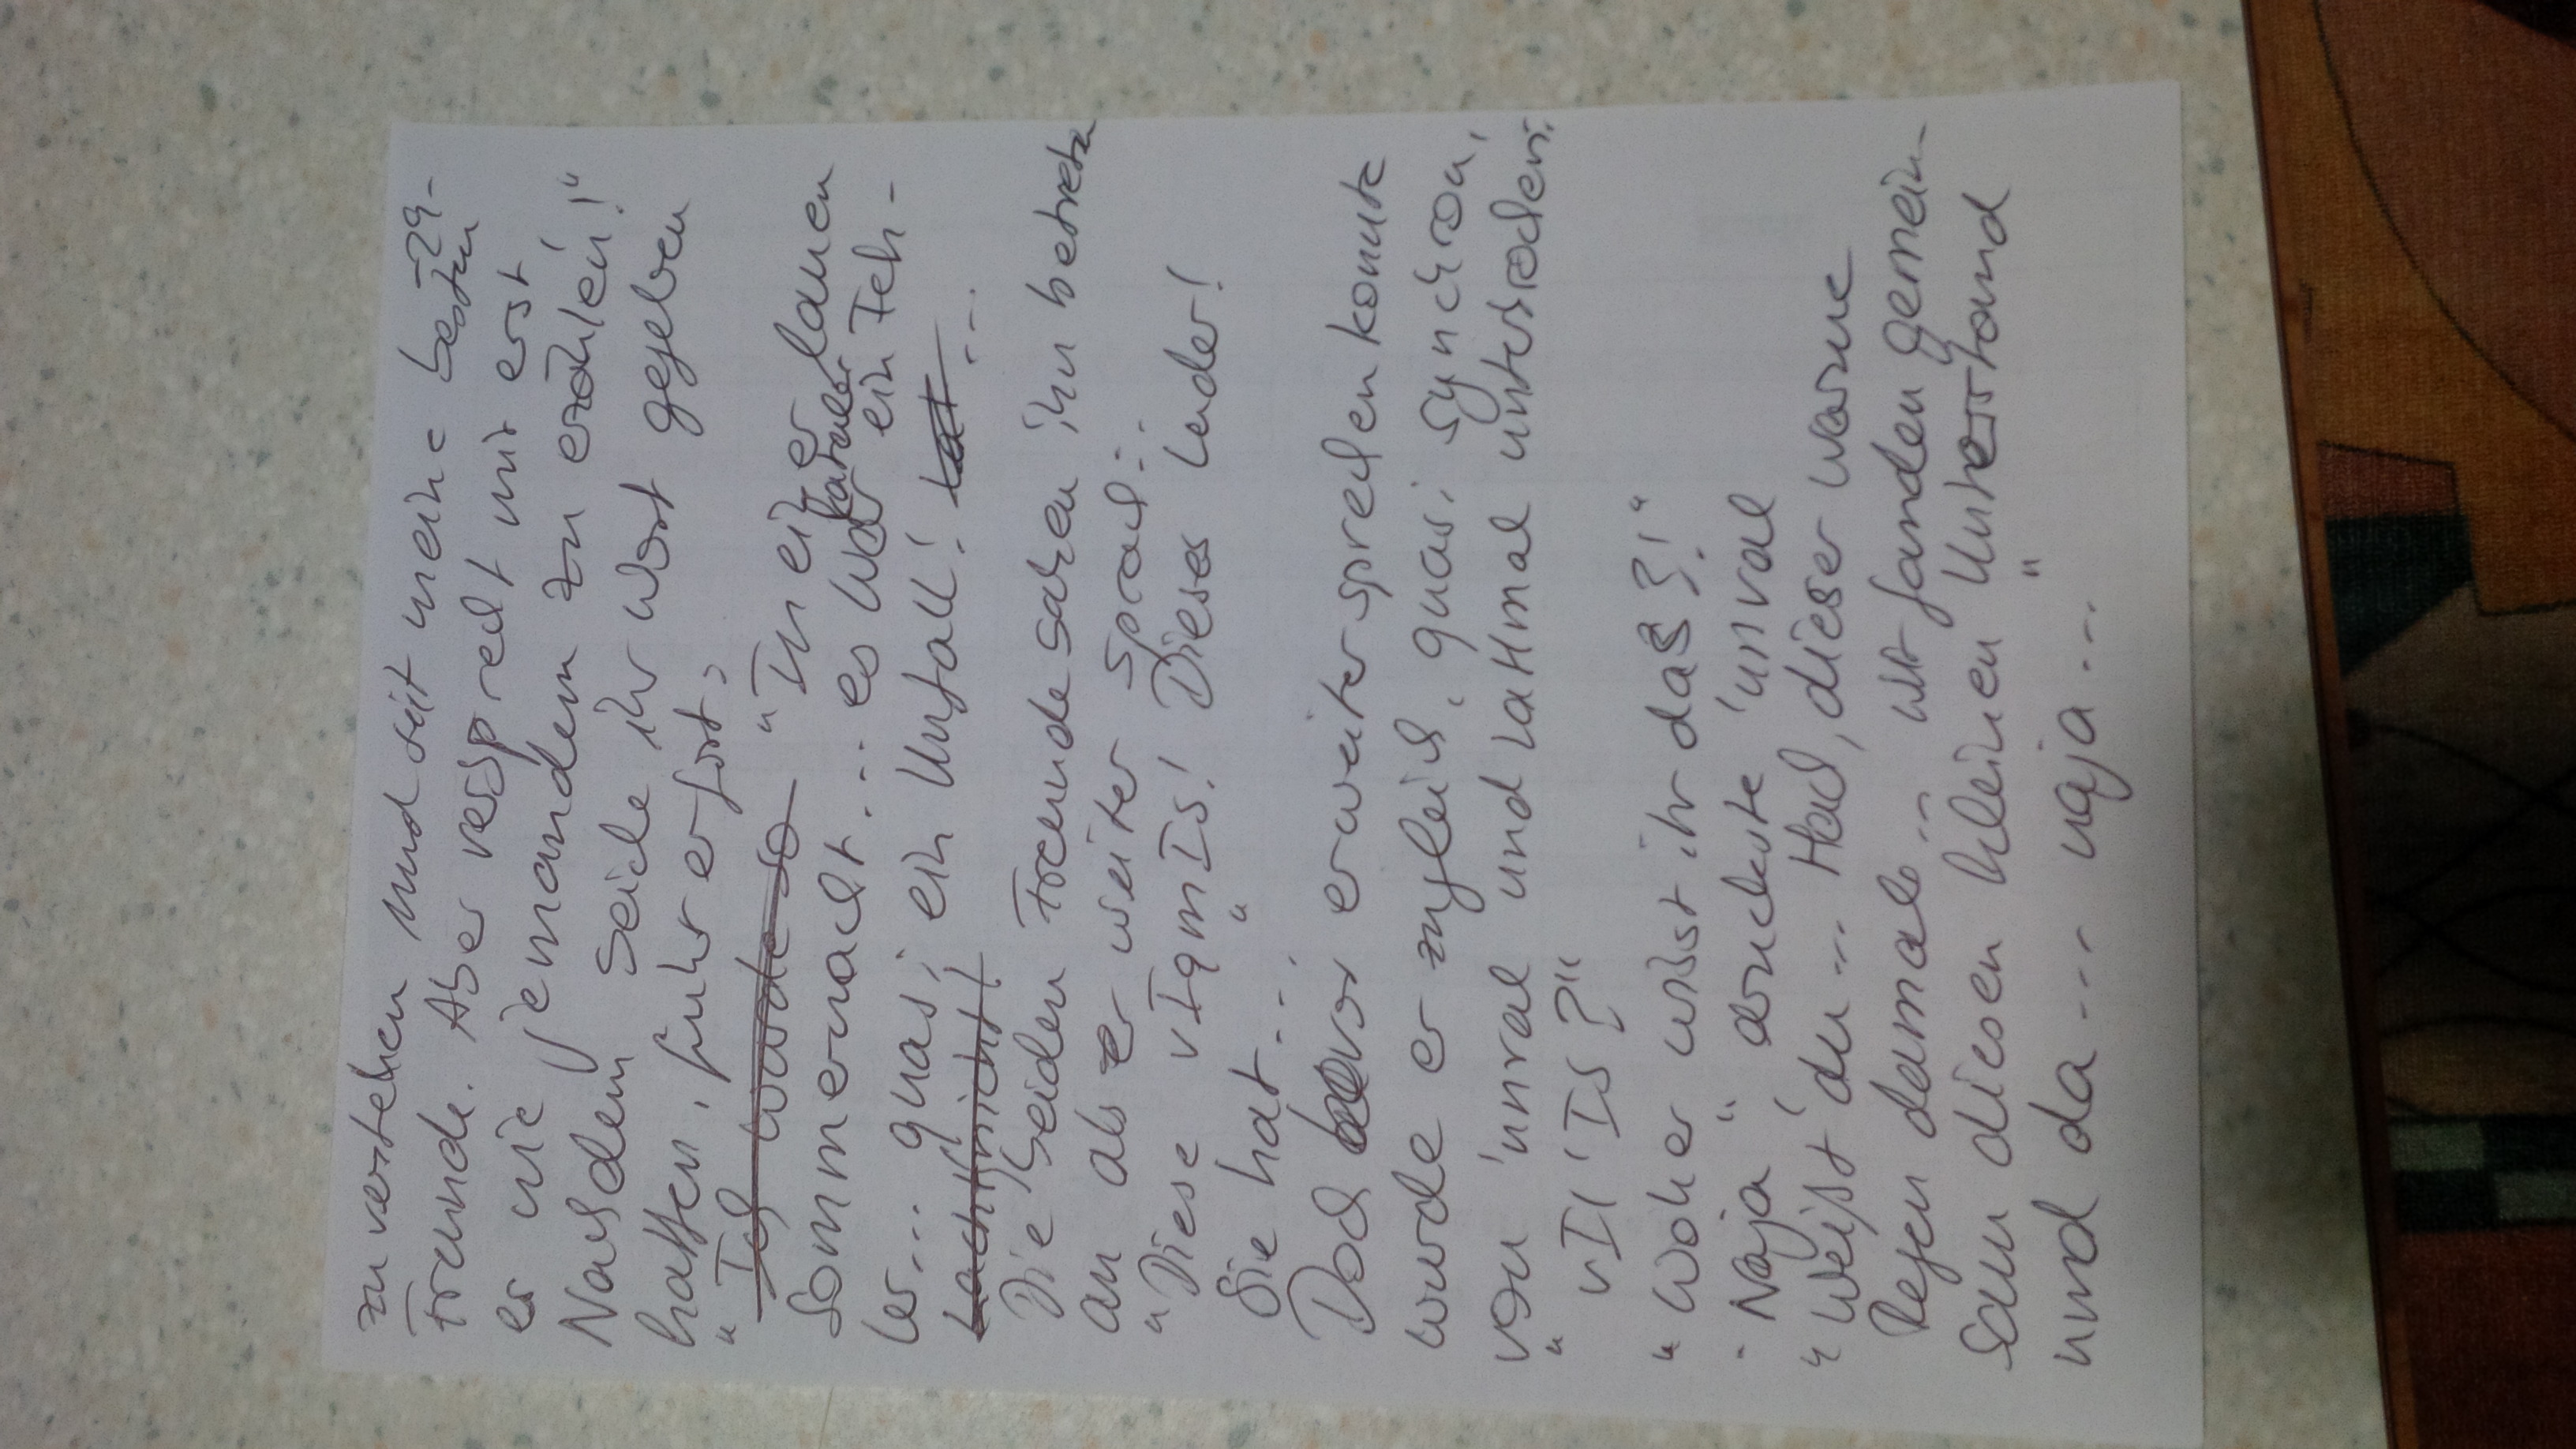 -29-
zu verstehen und seit meine besten
Freunde. Aber versprecht mir erst
es nie jemandem zu erzählen!"
Nachdem beide ihr Wort gegeben
hatten, fuhr er fort:
"Ich wurde so "In einer lauen
Sommernacht... es war fataler ein Feh-
ler... quasi ein Unfall!
Lacht nicht!
Die beiden Freunde sahen ihn betreten
an als er weiter sprach:
"Diese vIqmIS! Dieses Luder!
Sie hat..."
Doch bevor er weitersprechen konnte
wurde er zugleich, quasi synchron,
von 'unral und LaHmal unterbrochen:
" vIl'IS?"
"Woher wisst ihr das?!"
"Naja" druckste 'unral
"Weist du... Hach, dieser warme
Regen damals... wir fanden gemein-
sam diesen kleinen Unterstand
und da... naja..."